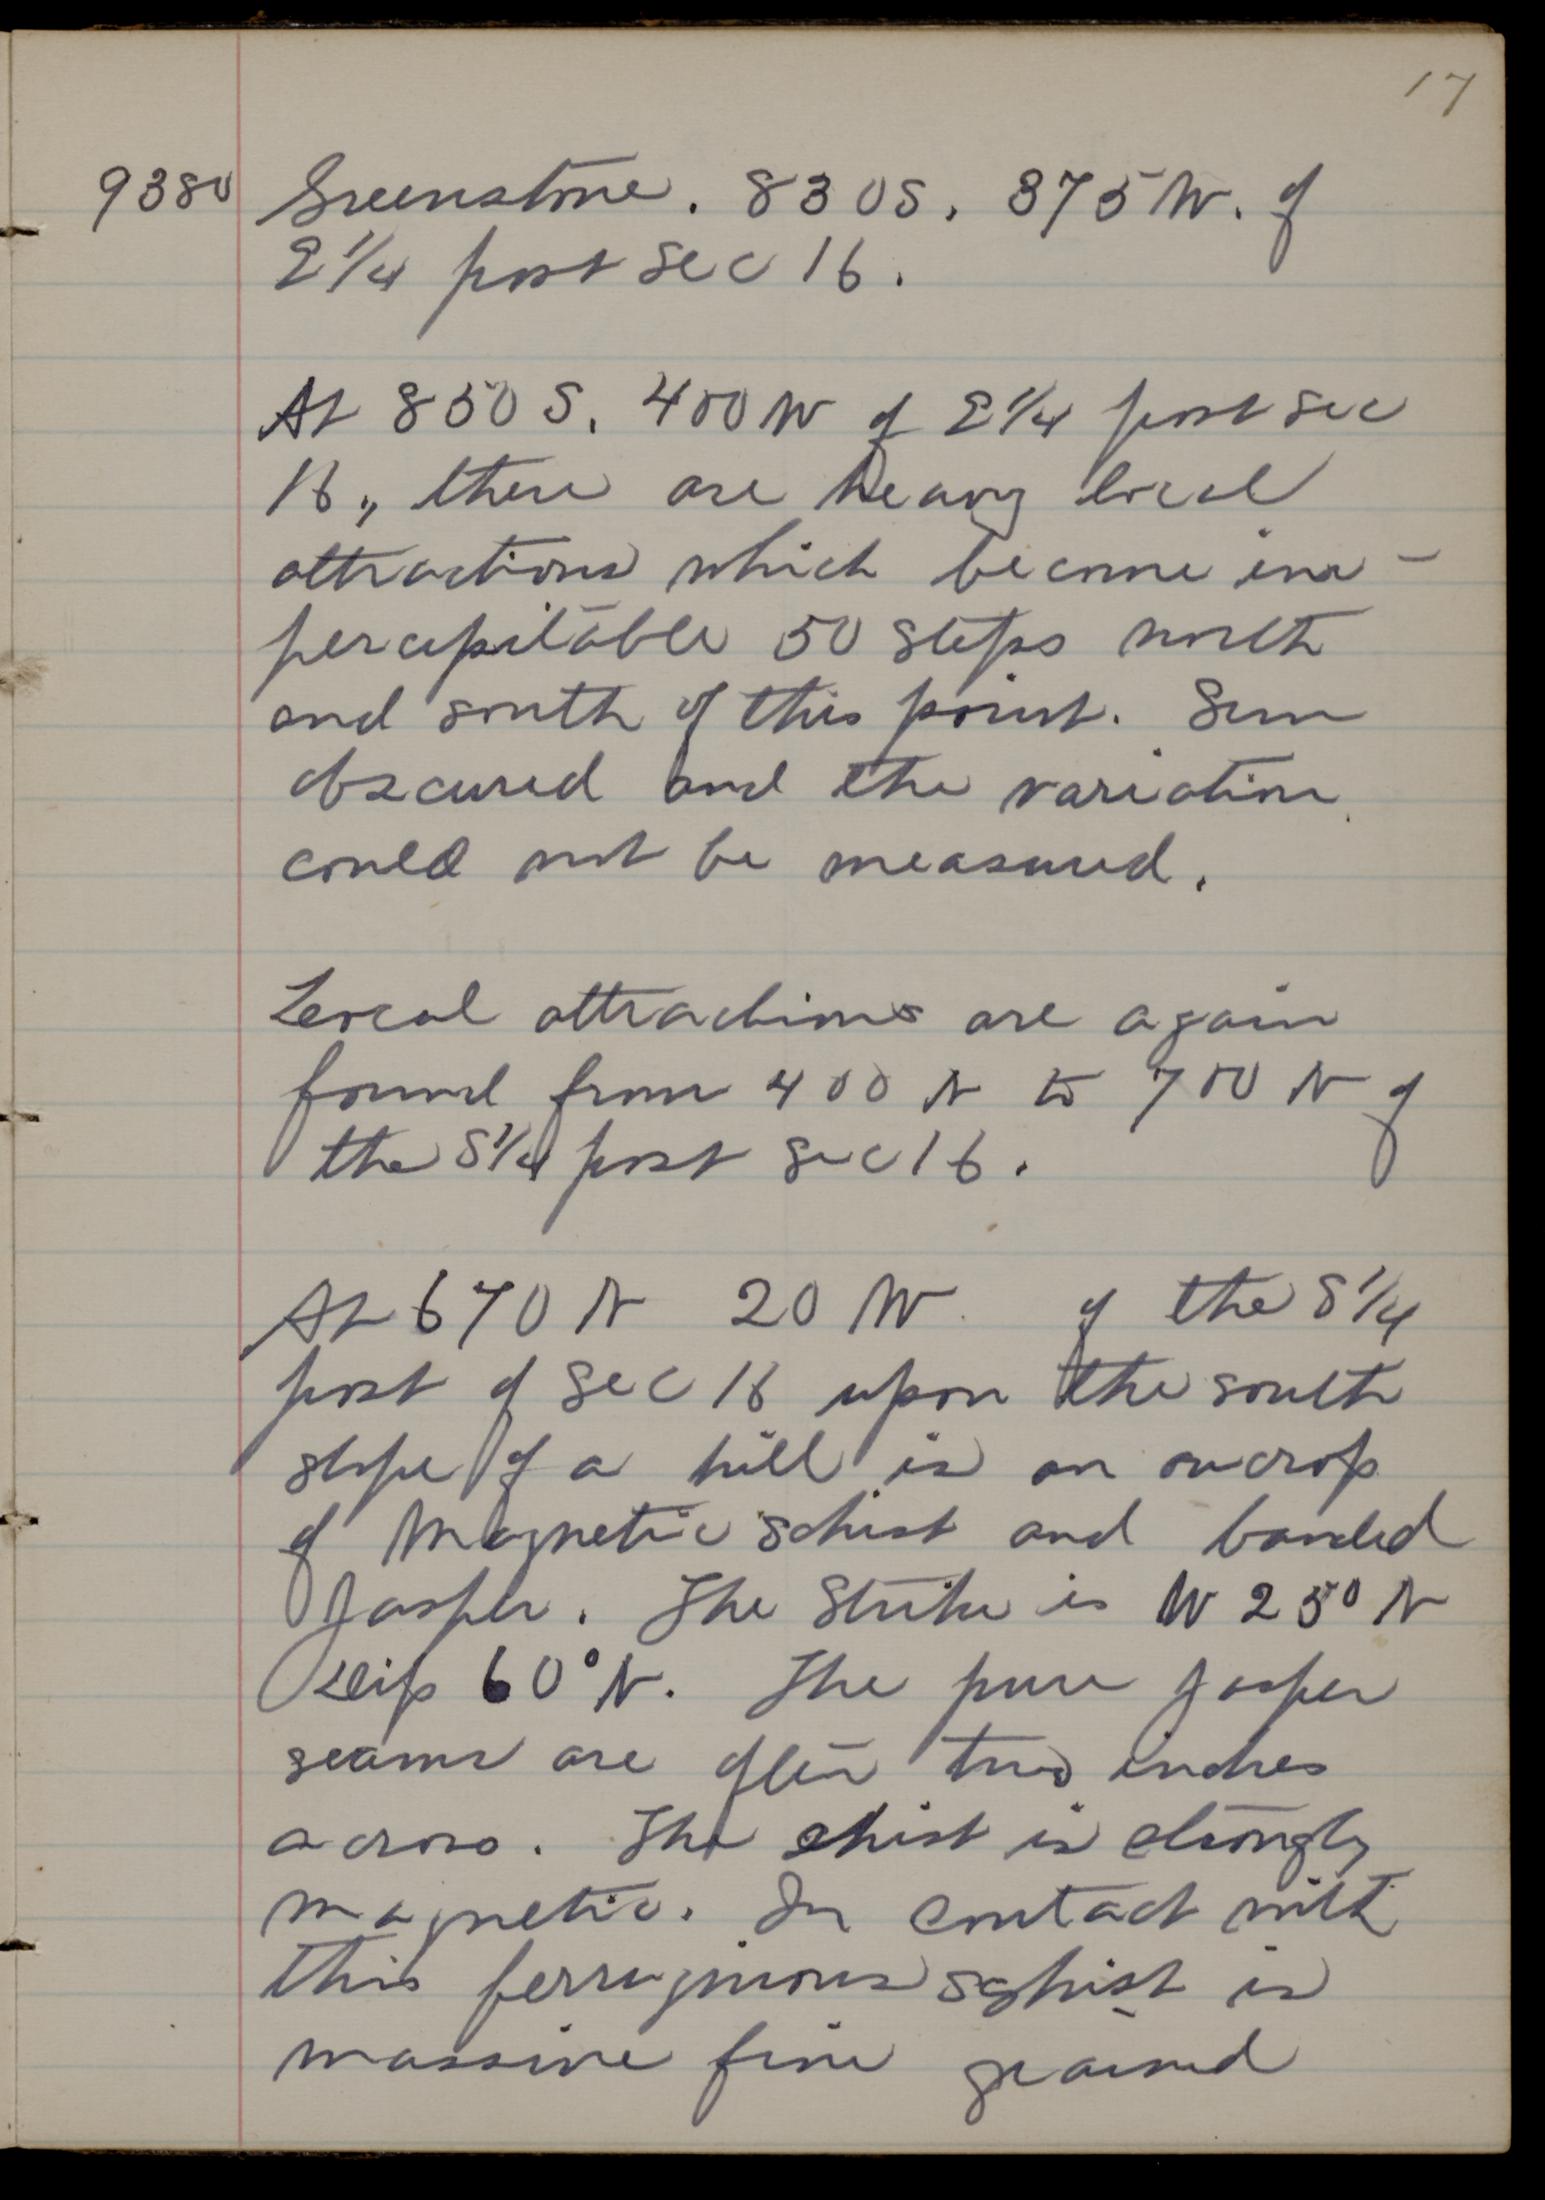 17
9380 Greenstone. 830S. 375W. of
E 1/4 post Sec 16.
At 850 S. 400 W of E 1/4 post Sec
16., there are heavy local
attractions which become im-
percepitable 50 steps north
and south of this point. Sun
obscured and the variation
could not be measured.
Local attractions are again
found from 400 N to 700 N of
the S 1/4 post Sec 16.
At 670 N 20 W. of the S 1/4
post of Sec 16 upon the south
slope of a hill is an oucrop
of Magnetic schist and banded
Jasper. The Strike is W 25° N
Dip 60° N. The pure Jasper
seams are often two inches
across. The shist is strongly
magnetic. In contact with
this ferruginous schist is
massive fine grained